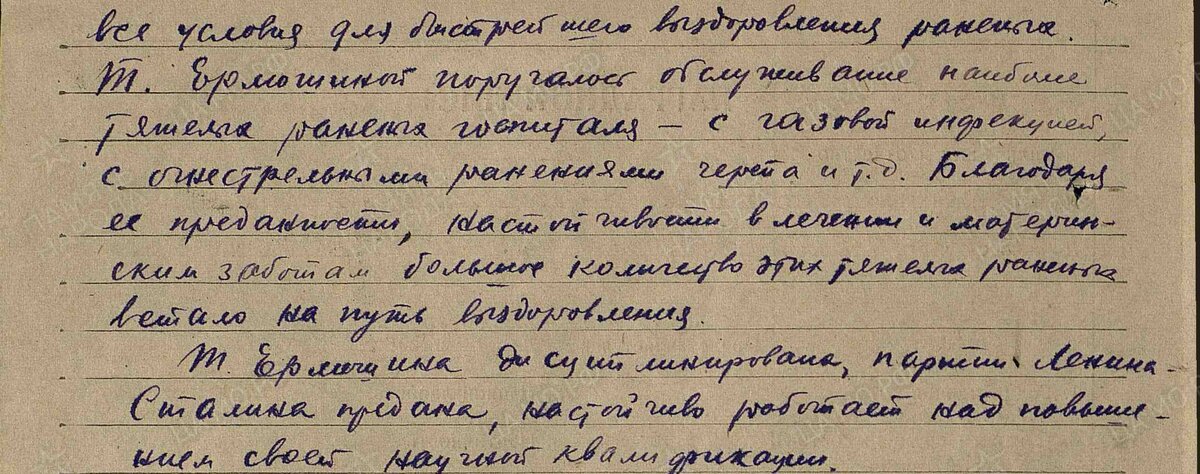 все условия для быстрейшего выздоровления раненых.
Т. Ермошиной поручалось обслуживание наиболее
тяжелых раненых госпиталя – с газовой инфекцией,
с огнестрельными ранениями черепа и т.д. Благодаря
ее преданности, настойчивости в лечении и материн-
ским заботам большое количество этих тяжелых раненых
встало на путь выздоровления.
Т. Ермошина дисциплинирована, партии Ленина-
Сталина предана, настойчиво работает над повыше-
нием своей научной квалификации.